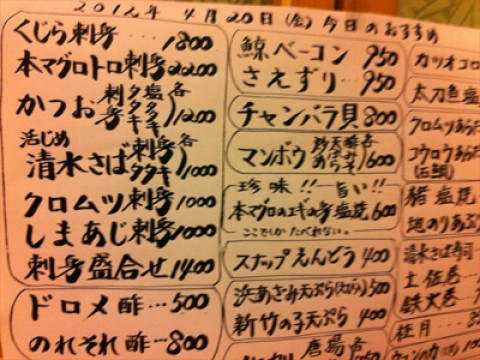 2012年 4月20日(金)今日のおすすめ
くじら刺身…1800
本マグロトロ刺身2200
かつお 刺身 タタキ 塩タタキ 各1200
活じめ
清水さば 刺身 タタキ 各1000
クロムツ刺身1000
しまあじ刺身1000
刺身盛合せ1400
ドロメ酢…500
のれそれ酢…800
鯨ベーコン950
さえずり…950
チャンバラ貝800
マンボウ 各600
珍味!!旨い!!
本マグロのエギの身塩焼600
ここでしかたべれない。
スナップえんどう400
浜あざみ天ぷら 500
新竹の子天ぷら400
唐揚各
カツオコロ
太刀魚塩
クロムツあらだ
コウロウあらだ
(石鯛)
猪塩焼
地のりあぶ
清水さば寿司
土佐巻…
鉄火巻…
桂月